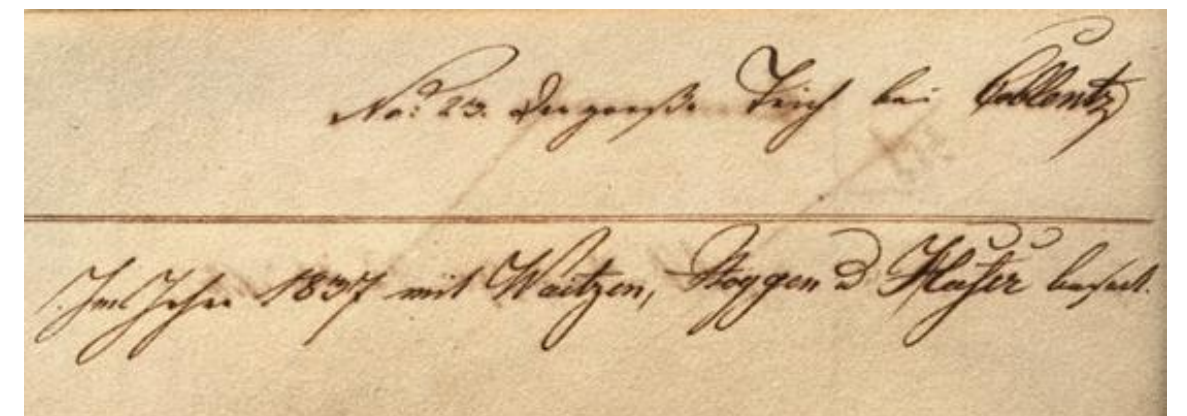 No: 23. Der große Teich bei Coblentz
Im Jahre 1837 mit Waitzen, Roggen u Hafer besaet.